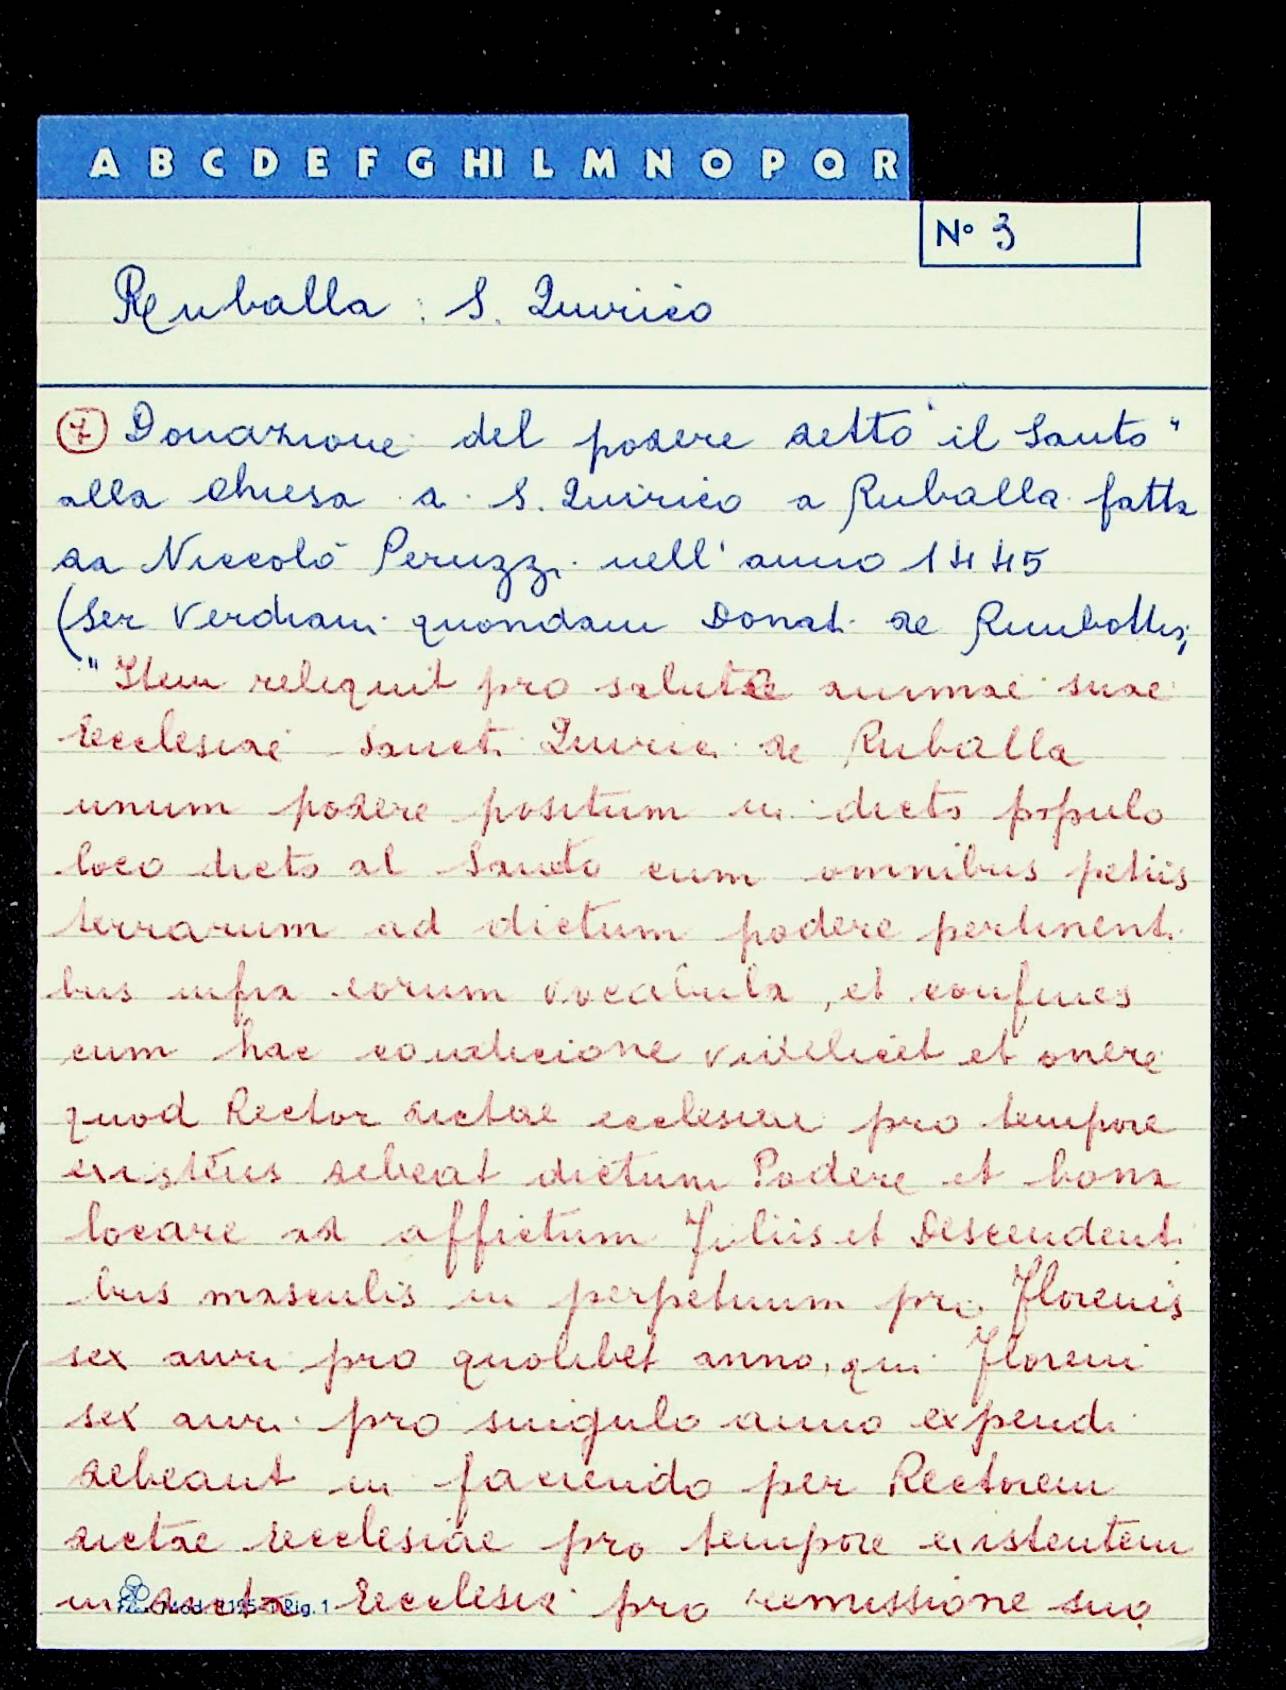 A B C D E F G HI L M N O P Q R
N° 3
Ruballa : S. Quirico
7 Donazione del podere detto "il Santo"
alla Chiesa di S. Quirico a Ruballa fatta
da Niccolò Peruzzi nell'anno 1445
(Ser Verdiani quondam Donati de
"Item reliquit pro salute animae suae
Ecclesiae Sancti Quirici de Ruballa
unum podere positum in dicto populo
loco dicto al Santo cum omnibus petiis
terrarum ad dictum podere pertinenti
bus infra eorum vocabula, et confines
cum hac condicione videlicet et onere
quod Rector dictae ecclesiae pro tempore
existens debeat dictum Podere et bona
locare ad affictum Filiis et Descendenti
bus masculis in perpetuum pro Florenis
sex auri pro quolibet anno, qui Floreni
sex auri pro singulo anno expendi
debeant in faciendo per Rectorem
dictae Ecclesiae pro tempore existentem
in dicta Ecclesia pro remissione suo